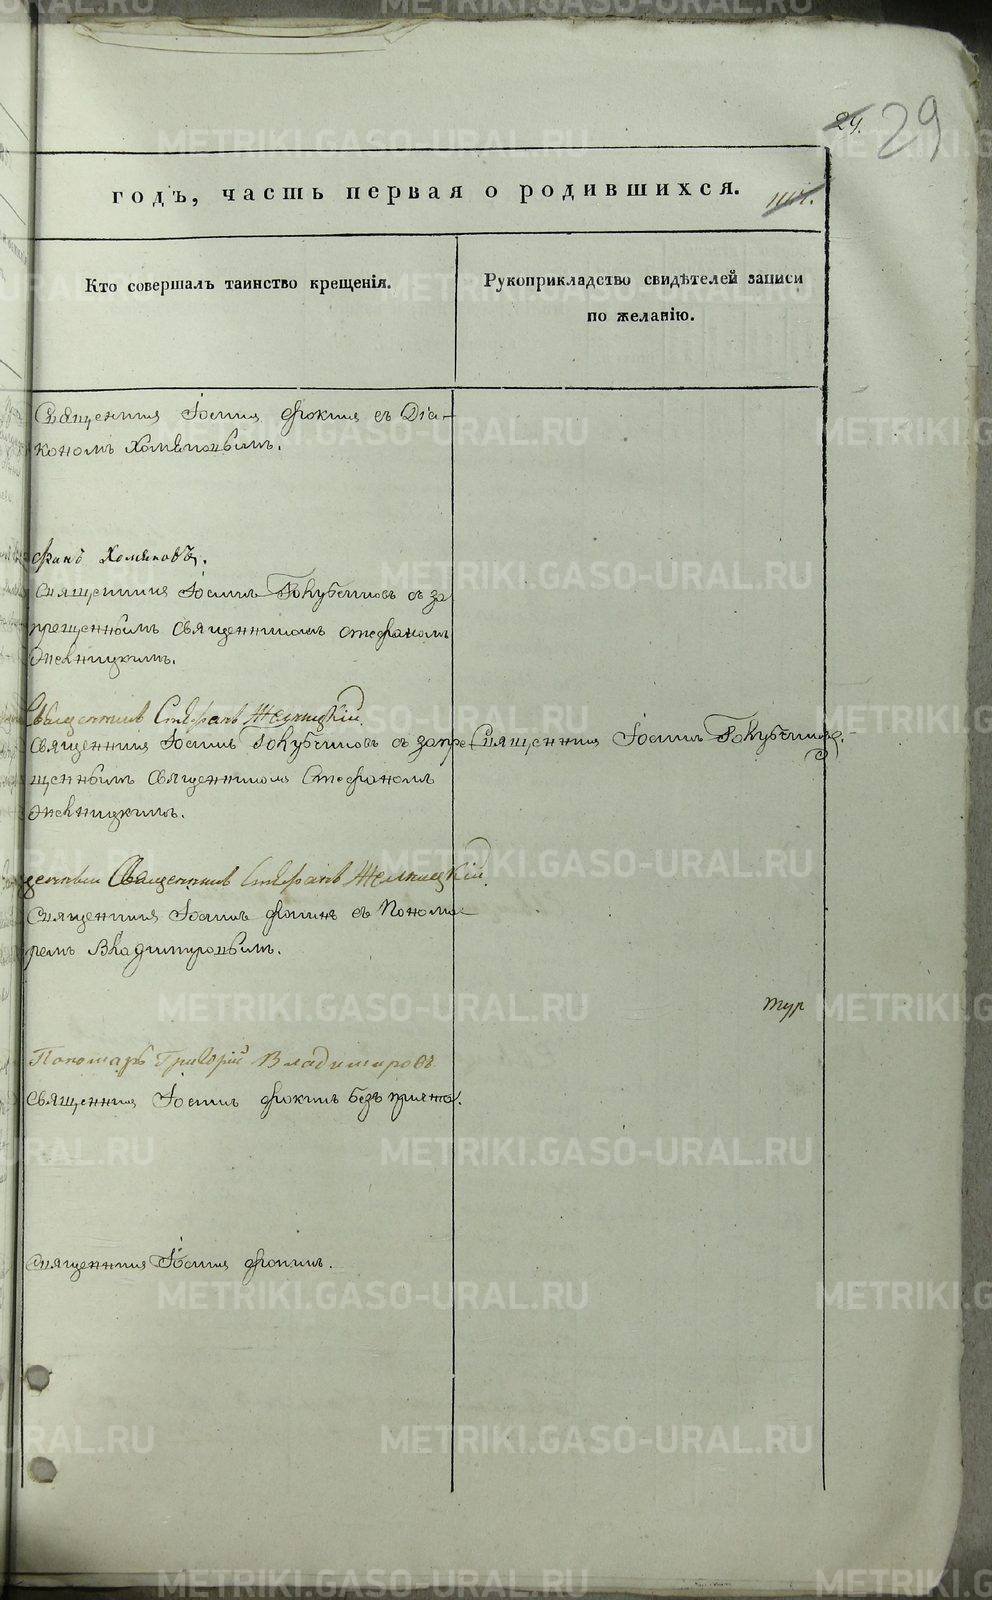 24.
29
годъ, часть первая о родившихся.
Кто совершалъ таинство крещенія.
Рукоприкладство свидѣтелей записи
по желанію.
Священник Іоанн Фокин съ Діа-
кономъ Хомяковымъ.
Хомяковъ.
Священник Іоанн Голубчиковъ съ за
прещеннымъ Священником Стефаном
Желницким.
Священникъ Стефанъ Желницкій
Священник Іоанн Голубчиковъ съ запре
щеннымъ Священником Стефаном
Желницким.
Священник Іоанн Голубчиков.
Священникъ Стефанъ Желницкій
Священник Іоанн Фокинъ съ Понома-
рем Владимировымъ.
Пономарь Григорій Владимировъ
Священник Іоанн Фокин безъ причта.
Священник Іоанн Фокин.
METRIKI.GASO-URAL.RU